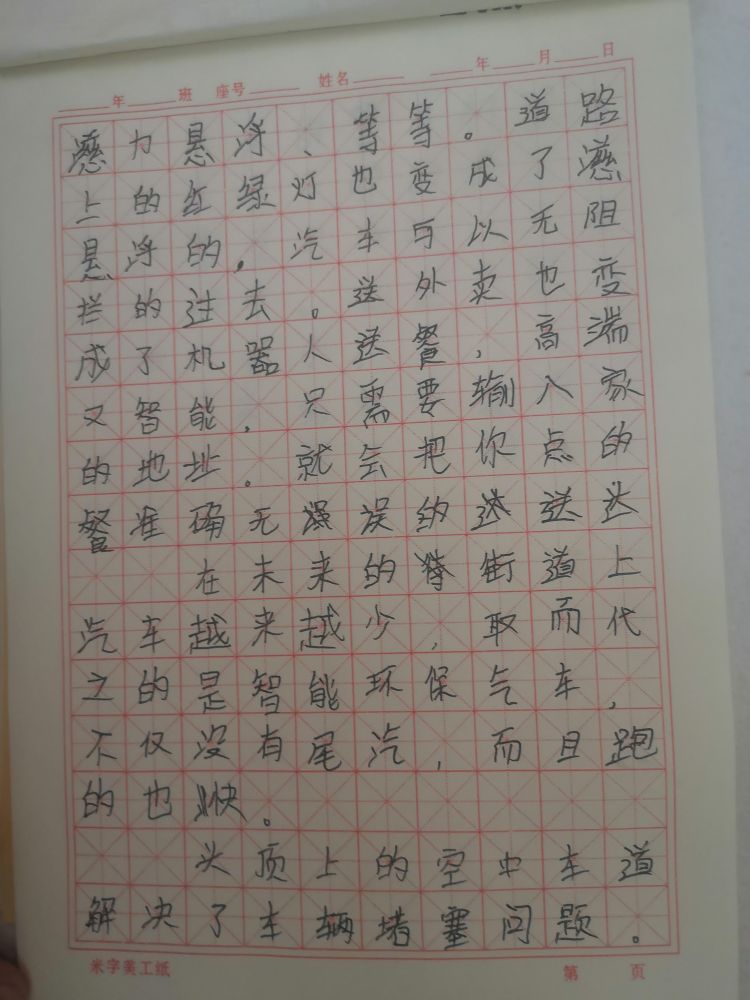 年 班 座号 姓名 年 月 日
力悬浮、等等。道路
上的红绿灯也变成了
悬浮的。汽车可以无阻
拦的过去。送外卖也变
成了机器人送餐，高端
又智能，只需要输入家
的地址。就会把你点的
餐准确无误的送达
在未来的街道上
汽车越来越少，取而代
之的是智能环保气车，
不仅没有尾汽，而且跑
的也快。
头顶上的空中车道
解决了车辆堵塞问题。
米字美工纸 第 页